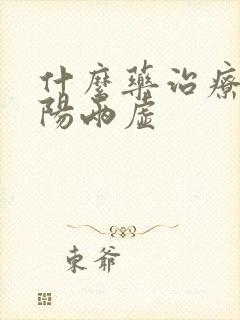 什麼藥治療
陽兩虛
東爺